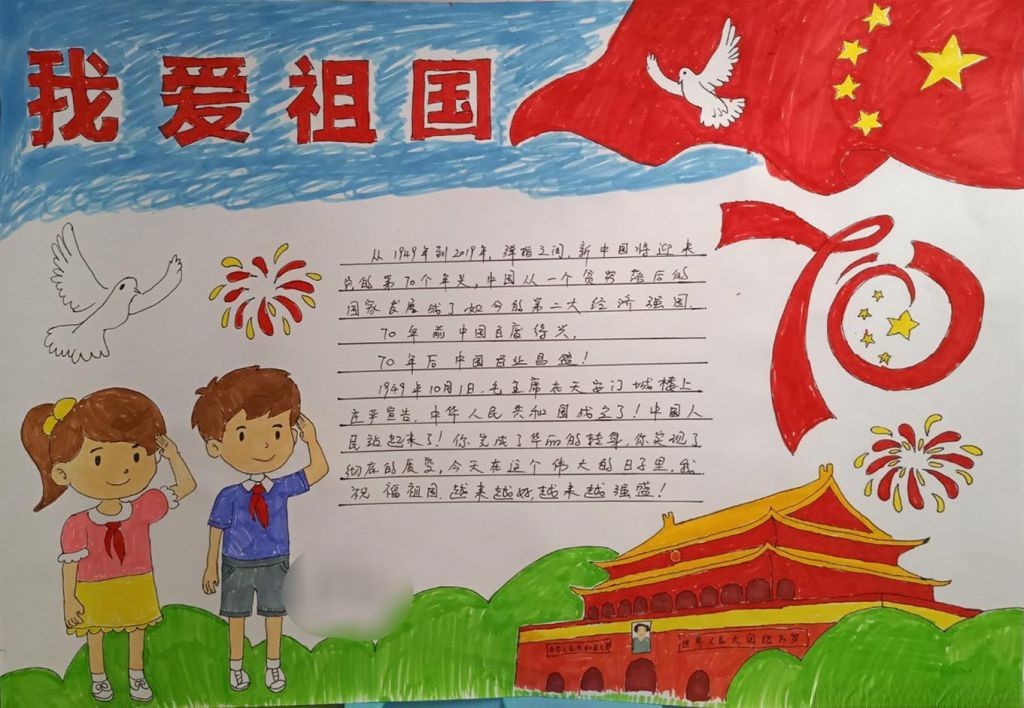 我爱祖国
从1949年到2019年，弹指之间，新中国将迎来
她的第70个年头，中国从一个贫穷落后的
国家发展成了如今的第二大经济强国。
70年前中国百废待兴，
70年后中国百业昌盛！
1949年10月1日，毛主席在天安门城楼上
庄严宣告，中华人民共和国成立了！中国人
民站起来了！你完成了华丽的转身，你实现了
彻底的质变，今天在这个伟大的日子里，我
祝福祖国，越来越好，越来越强盛！
70
中华人民共和国万岁
世界人民大团结万岁